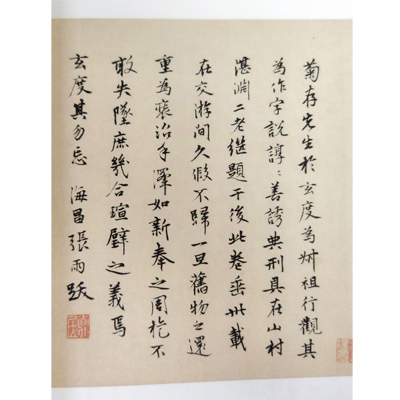 菊存先生於玄度為叔祖行觀其
為作字說諄〻善誘典刑具在山村
湛淵二老繼題于後此卷垂卅載
在交游間久假不歸一旦舊物之還
重為裝治手澤如新奉之周旋不
敢失墜庶幾合瑄璧之義焉
玄度其勿忘 海昌張雨跋